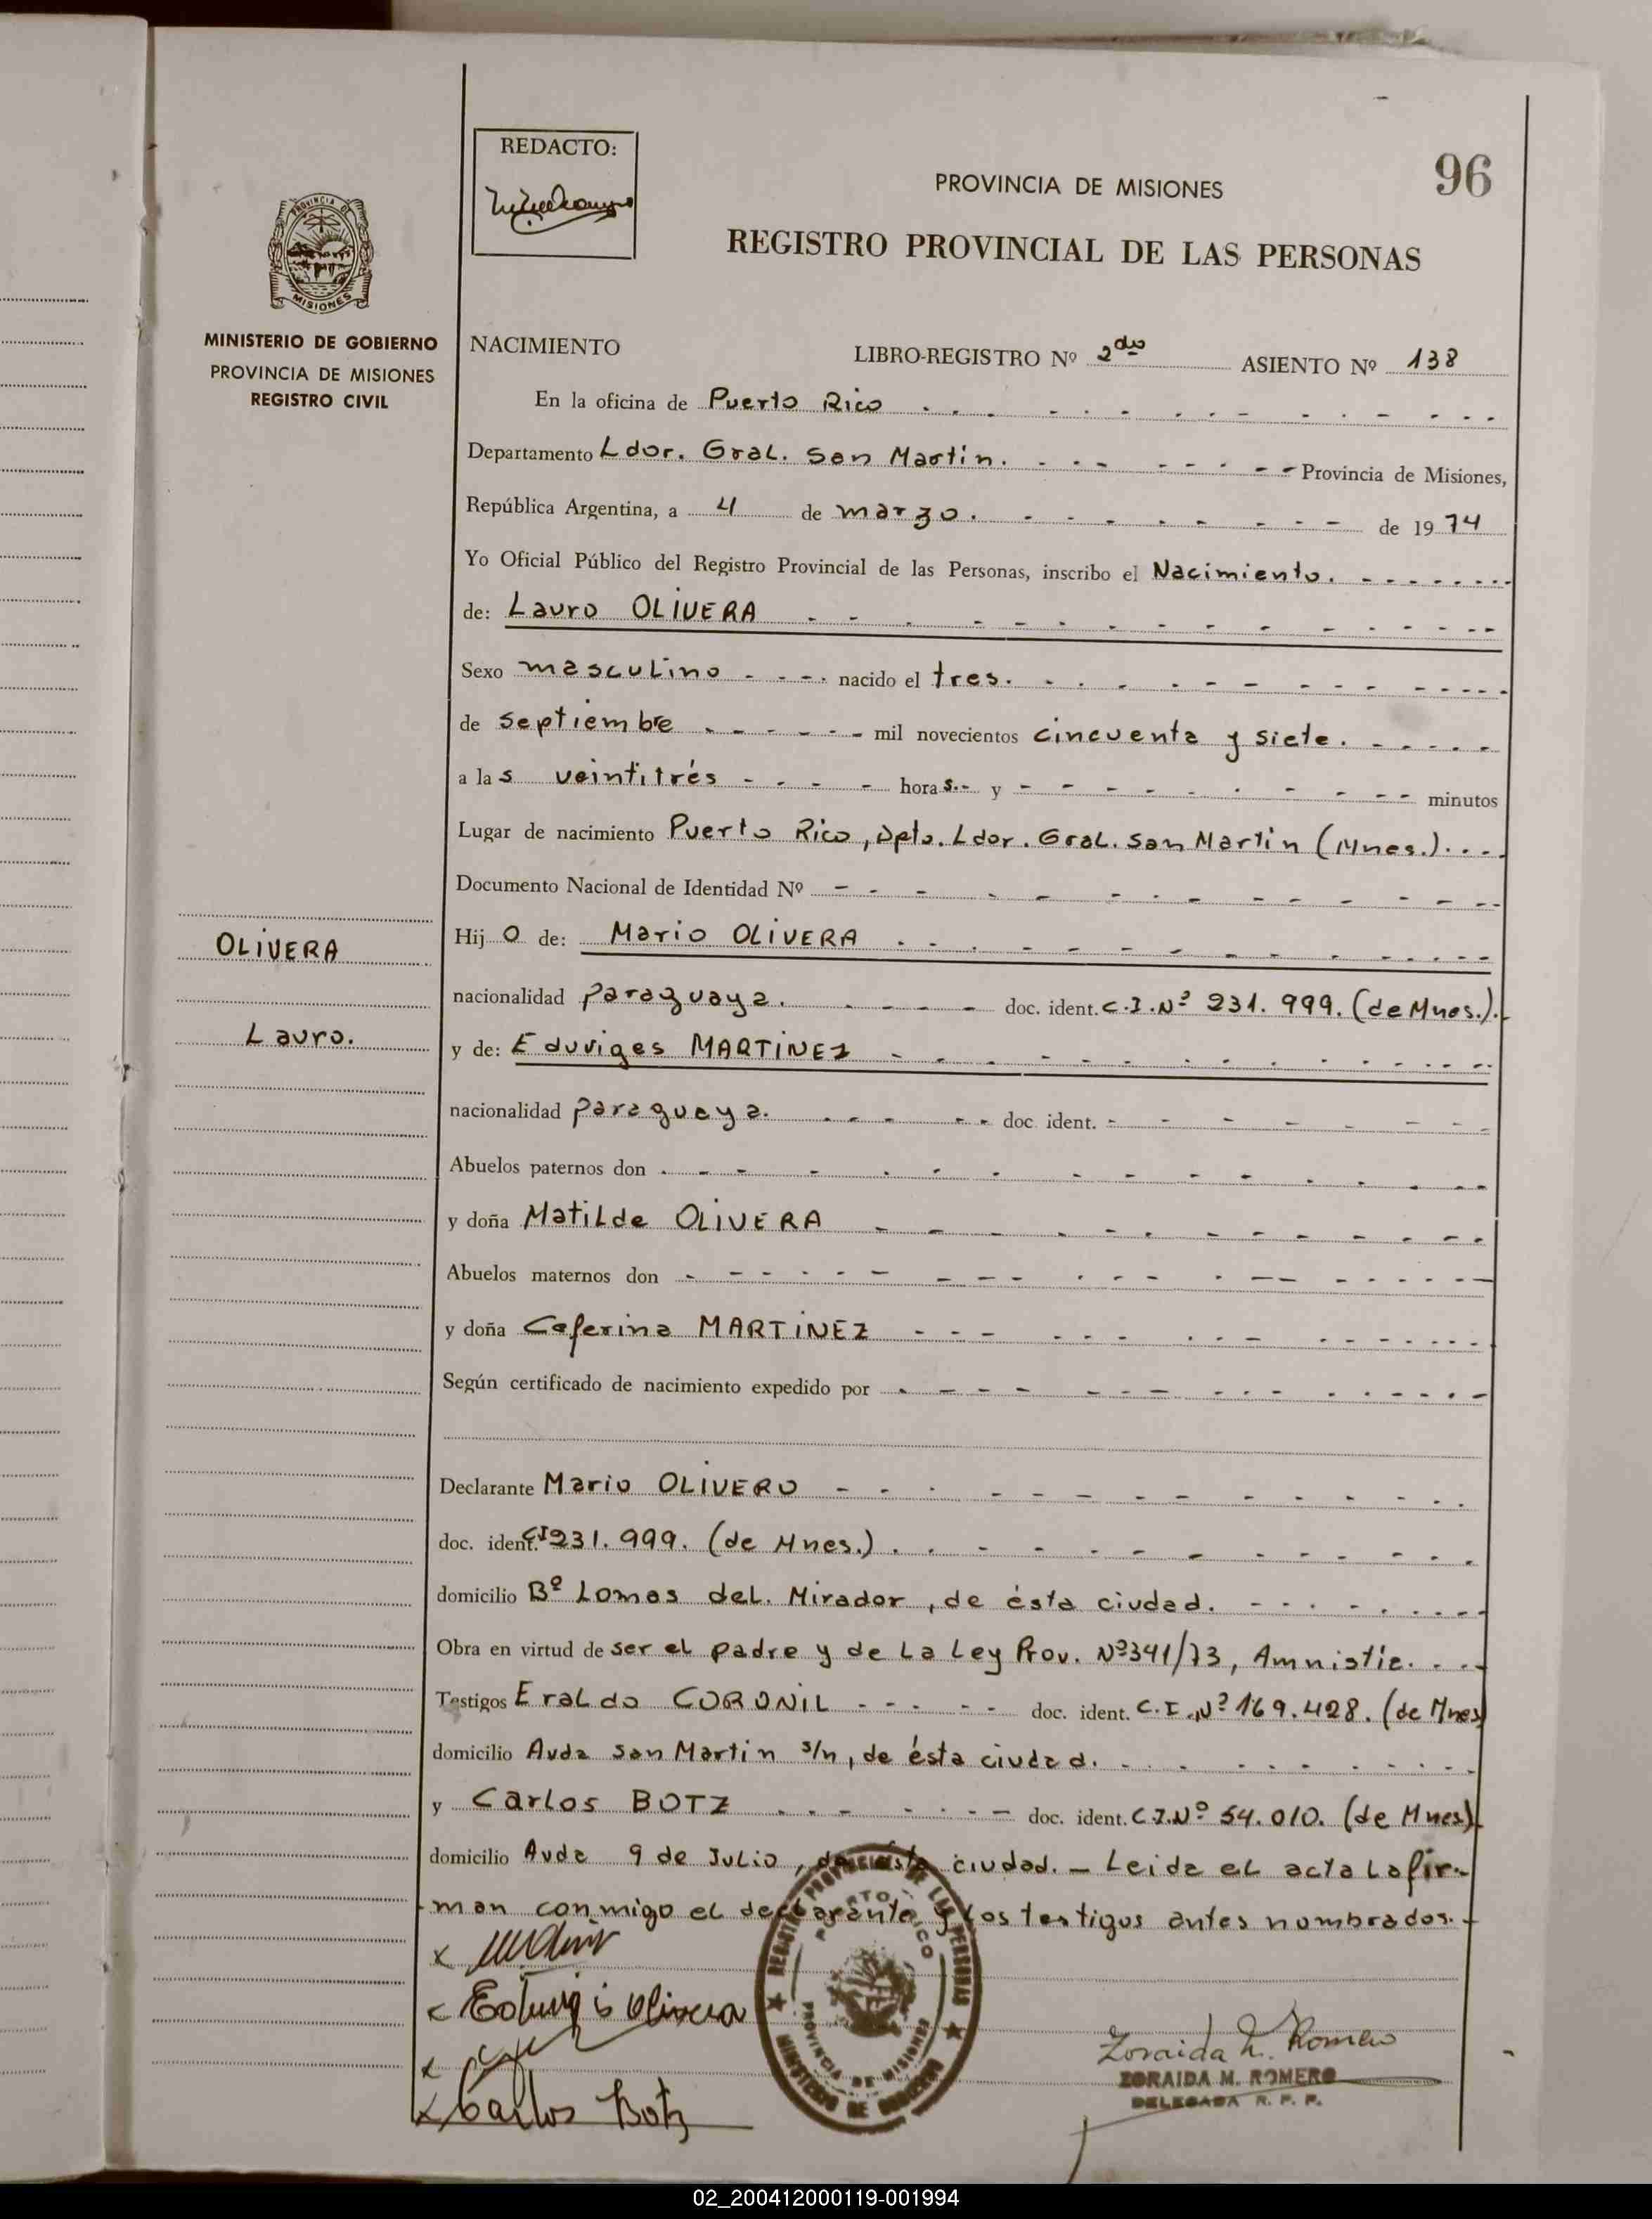 REDACTO:
96
PROVINCIA DE MISIONES
REGISTRO PROVINCIAL DE LAS PERSONAS
PROVINCIA DE MISIONES
MINISTERIO DE GOBIERNO
PROVINCIA DE MISIONES
REGISTRO CIVIL
NACIMIENTO LIBRO-REGISTRO Nº 2do ASIENTO Nº 138
En la oficina de Puerto Rico
Departamento Ldor. Gral. San Martín. Provincia de Misiones,
República Argentina, a 4 de marzo. de 1974
Yo Oficial Público del Registro Provincial de las Personas, inscribo el Nacimiento.
de: Lauro OLIVERA
Sexo masculino nacido el tres.
de septiembre mil novecientos cincuenta y siete.
a las veintitrés horas.- y minutos
Lugar de nacimiento Puerto Rico, Dpto. Ldor. Gral. San Martín (Mnes.)
Documento Nacional de Identidad Nº
OLIVERA
Lauro.
Hijo de: Mario OLIVERA
nacionalidad paraguaya. doc. ident. C.I. Nº 231.999. (de Mnes.).
y de: Eduviges MARTINEZ
nacionalidad paraguaya. doc. ident.
Abuelos paternos don
y doña Matilde OLIVERA
Abuelos maternos don
y doña Ceferina MARTINEZ
Según certificado de nacimiento expedido por
Declarante Mario OLIVERO
doc. ident. CI 231.999. (de Mnes.)
domicilio Bº Lomas del. Mirador, de ésta ciudad.
Obra en virtud de ser el padre y de la Ley Prov. Nº341/73, Amnistía.
Testigos Eraldo CORONIL doc. ident. C.I. Nº 169.428. (de Mnes)
domicilio Avda San Martín s/n, de ésta ciudad.
y Carlos BOTZ doc. ident. C.I.Nº 54.010. (de Mnes)
domicilio Avda 9 de Julio, de ésta ciudad. — Leida el acta la fir-
man conmigo el declarante y los testigos antes nombrados.
x
x Eduvigis Olivera
x
x Carlos Botz
REGISTRO PROVINCIAL DE LAS PERSONAS
PUERTO RICO
PROVINCIA DE MISIONES
MINISTERIO DE GOBIERNO
Zoraida M. Romero
ZORAIDA M. ROMERO
DELEGADA R. P. P.
02_200412000119-001994